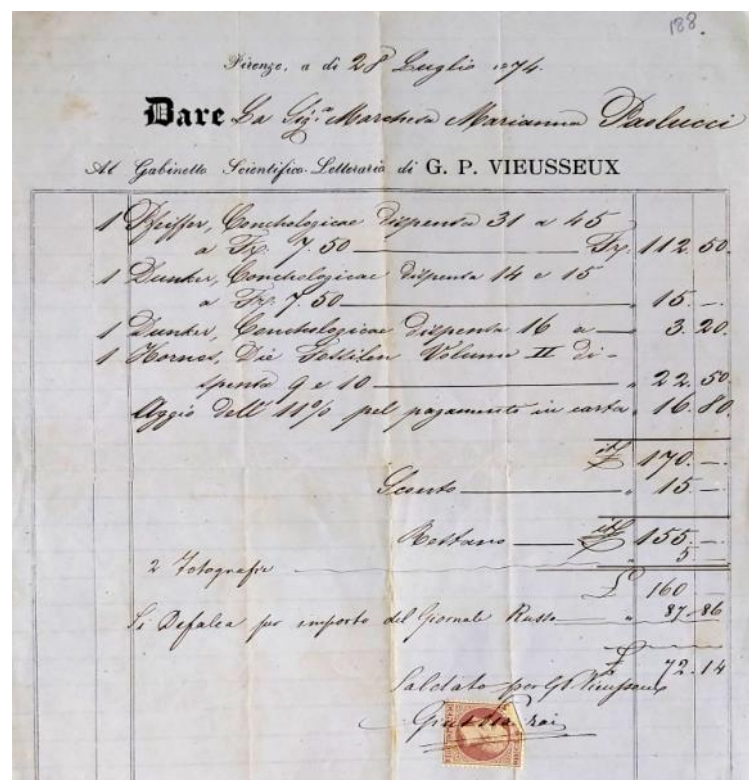 188.
Firenze, a dì 28 Luglio 1874.
Dare La Sig.ª Marchesa Marianna Paolucci
Al Gabinetto Scientifico-Letterario di G. P. VIEUSSEUX
1 Pfeiffer, Conchologicae Dispensa 31 a 45
a Fr. 7.50 Fr. 112.50.
1 Dunker, Conchologicae Dispensa 14 e 15
a Fr. 7.50 " 15.—.
1 Dunker, Conchologicae Dispensa 16 a " 3.20.
1 Hornes, Die Fossilen Volume II Di-
spensa 9 e 10 " 22.50.
Aggio dell' 11% pel pagamento in carta " 16.80.
it£ 170.—
Sconto " 15.—
Restano it£ 155.—
2 Fotografie " 5.—
£ 160
Si Defalca per importo del Giornale Russo " 87.86
£ 72.14
Saldato per GP Vieusseux